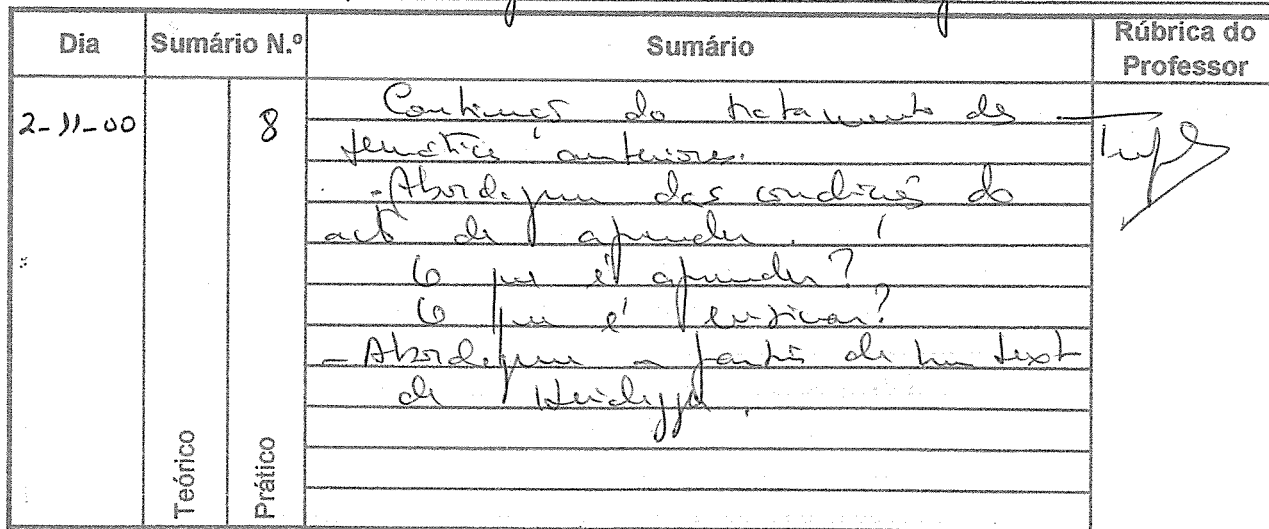 Dia Sumário N.º Sumário Rúbrica do Professor
2-11-00 8 Continuação do tratamento das
temáticas anteriores.
- Abordagem das condições do
acto de aprender.
O que é aprender?
O que é ensinar?
- Abordagem a partir de um texto
de Heidegger.
Teórico Prático